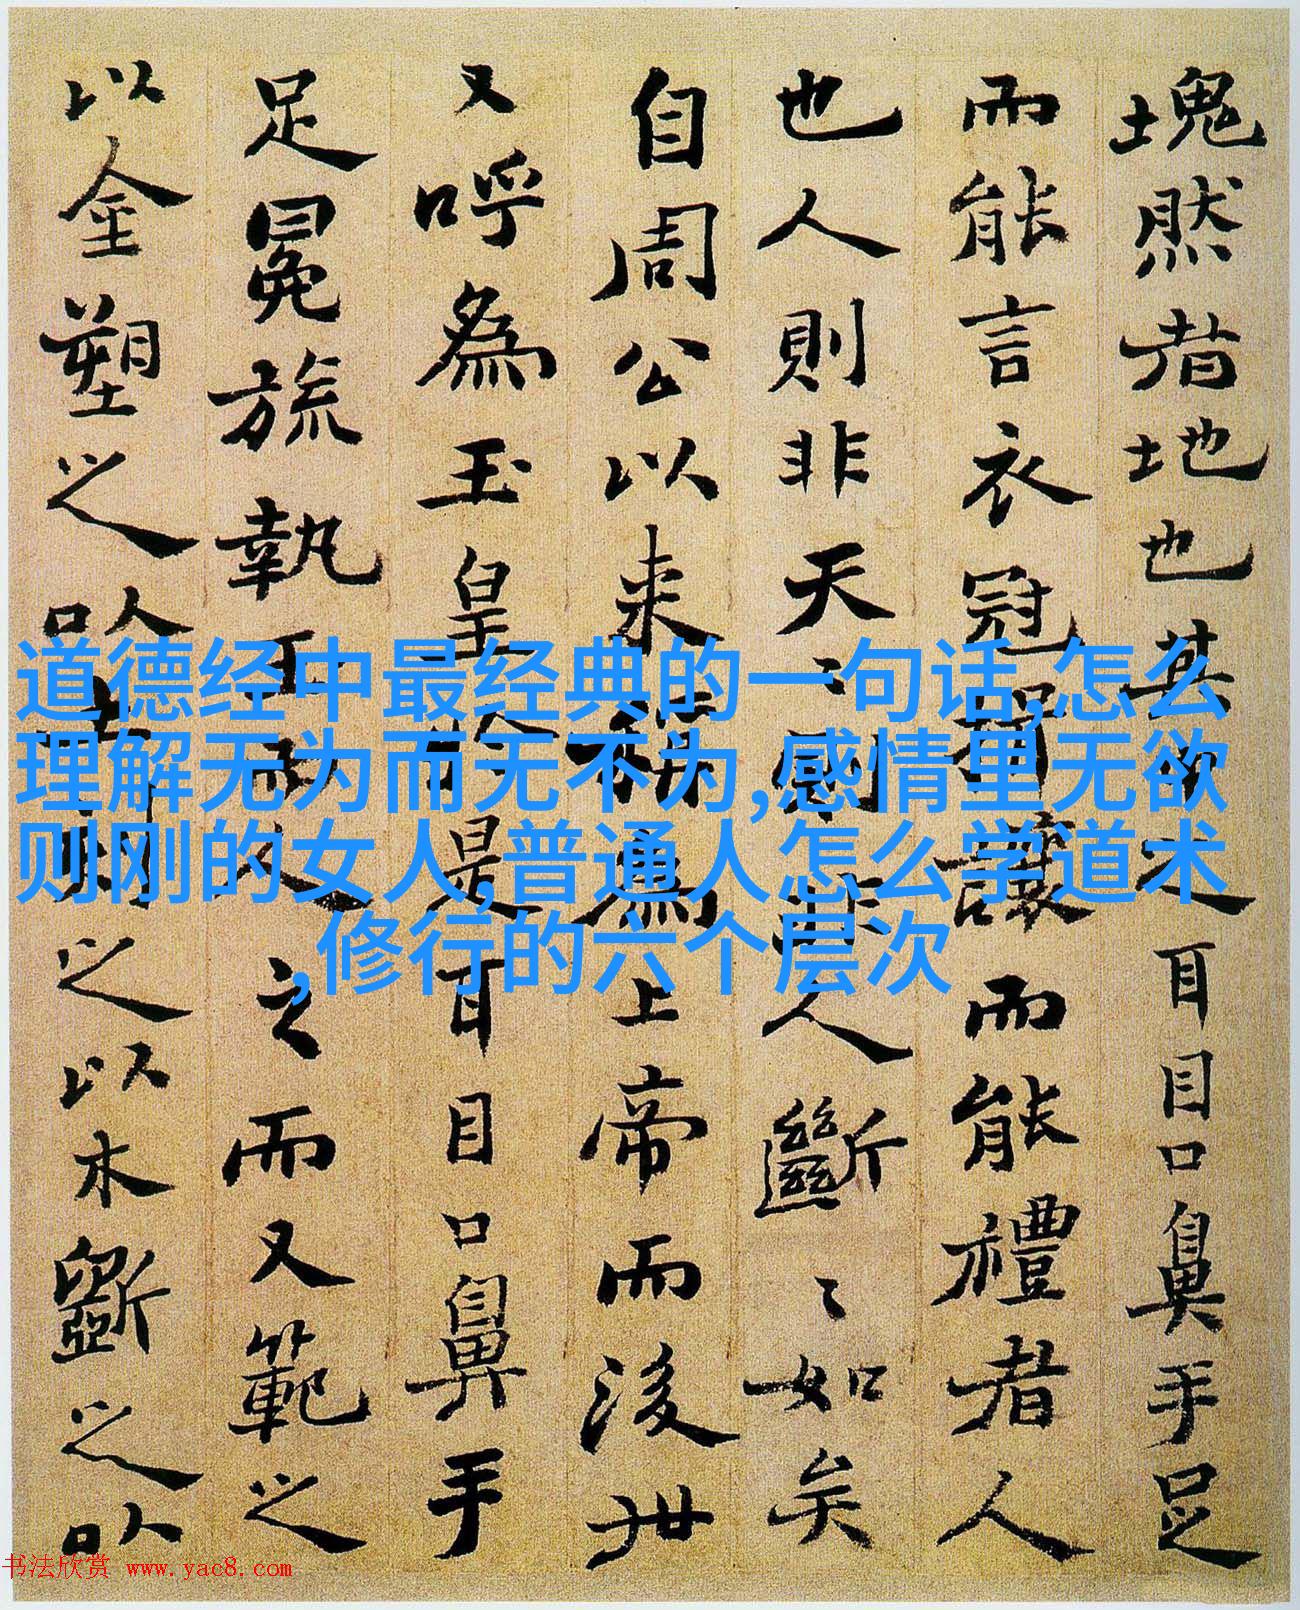 塊然者地也其之耳目口鼻手足
而能言衣冠揖讓而能禮者人
也人則非天〻則非人斷〻如矣
自周公以来稱為上帝而後世
又呼為玉皇於是耳目口鼻手
足冕旒執玉而人之而又範之
以金塑之以土之以木斲之以
道德经中最经典的一句话,怎么
理解无为而无不为,感情里无欲
则刚的女人,普通人怎么学道术
,修行的六个层次
书法欣赏 www.yac8.com